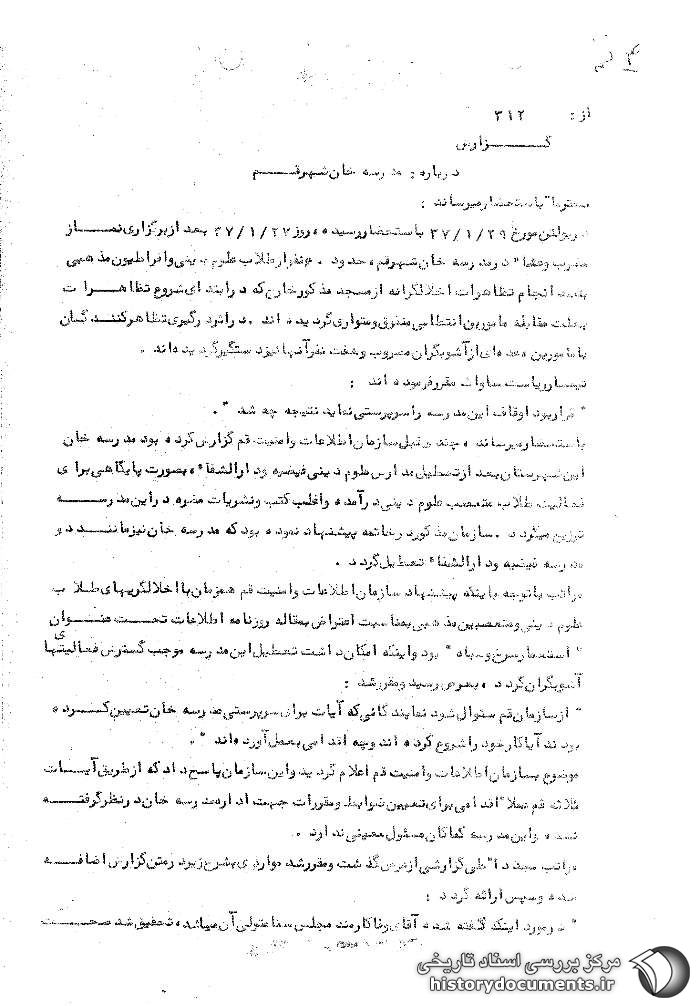 از : ۳۱۲
گـــــزارش
درباره : مدرسه خان شهر قـــم
محترما" باستحضار میرساند :
در بولتن مورخ ۳۷/۱/۲۹ باستحضار رسیده ، روز ۳۷/۱/۲۷ بعد از برگزاری نمـــاز
مغرب وعشا" در مدرسه خان شهر قم ، حدود نفر از طلاب علوم دینی و افراطیون مذهبی
بقصد انجام تظاهرات اخلالگرانه از مسجد مذکور خارج که در ابتدای شروع تظاهـــرات
بعلت مقابله مامورین انتظامی متفرق و متواری گردیده اند . در اثر درگیری تظاهرکننـدگان
با مامورین عده ای از آشوبگران مضروب و هفت نفر آنها نیز دستگیر گردیده اند .
تیمسار ریاست ساواک مقرر فرموده اند :
" قرار بود اوقاف این مدرسه را سرپرستی نماید نتیجه چه شد " .
باستحضار میرساند ، چند قبل سازمان اطلاعات و امنیت قم گزارش کرده بود مدرسه خان
این شهرستان بعد از تعطیل مدارس علوم دینی فیضیه و دارالشفا" ، بصورت پایگاهی برای
فعالیت طلاب متعصب علوم دینی در آمده و اغلب کتب و نشریات مضره در این مدرســـه
توزیع میگردد . سازمان مذکور در خاتمه پیشنهاد نموده بود که مدرسه خان نیز ماننـــد دو
مدرسه فیضیه و دارالشفا" تعطیل گردد .
مراتب با توجه باینکه پیشنهاد سازمان اطلاعات و امنیت قم همزمان با اخلالگریهای طـلاب
علوم دینی و متعصبین مذهبی بمناسبت اعتراض بمقاله روزنامه اطلاعات تحـــت عنـــوان
" استعمار سرخ و سیاه " بود و اینکه امکان داشت تعطیل این مدرسه موجب گسترش فعالیتهای
آشوبگران گردد ، بعرض رسید و مقرر شد :
" از سازمان قم سئوال شود نمایندگانی که آیات برای سرپرستی مدرسه خان تعیین کـــرده
بودند آیا کار خود را شروع کرده اند و چه اقدامی بعمل آورده اند " .
موضوع بسازمان اطلاعات و امنیت قم اعلام گردید و این سازمان پاسخ داد که از طریق آیـــات
ثلاثه قم عملا" اقدامی برای تعیین ضوابط و مقررات جهت اداره مدرسه خان در نظر گرفتـــه
نشده و این مدرسه کماکان مسئول معینی ندارد .
مراتب مجددا" طی گزارشی از عرض گذشت و مقرر شد مواردی بشرح زیر در متن گزارش اضافـــه
شده و سپس ارائه گردد :
" در مورد اینکه گفته شده آقای وفا کارمند مجلس سنا متولی آن میباشد ، تحقیق شد صحـــت
مرکز بررسی اسناد تاریخی
historydocuments.ir